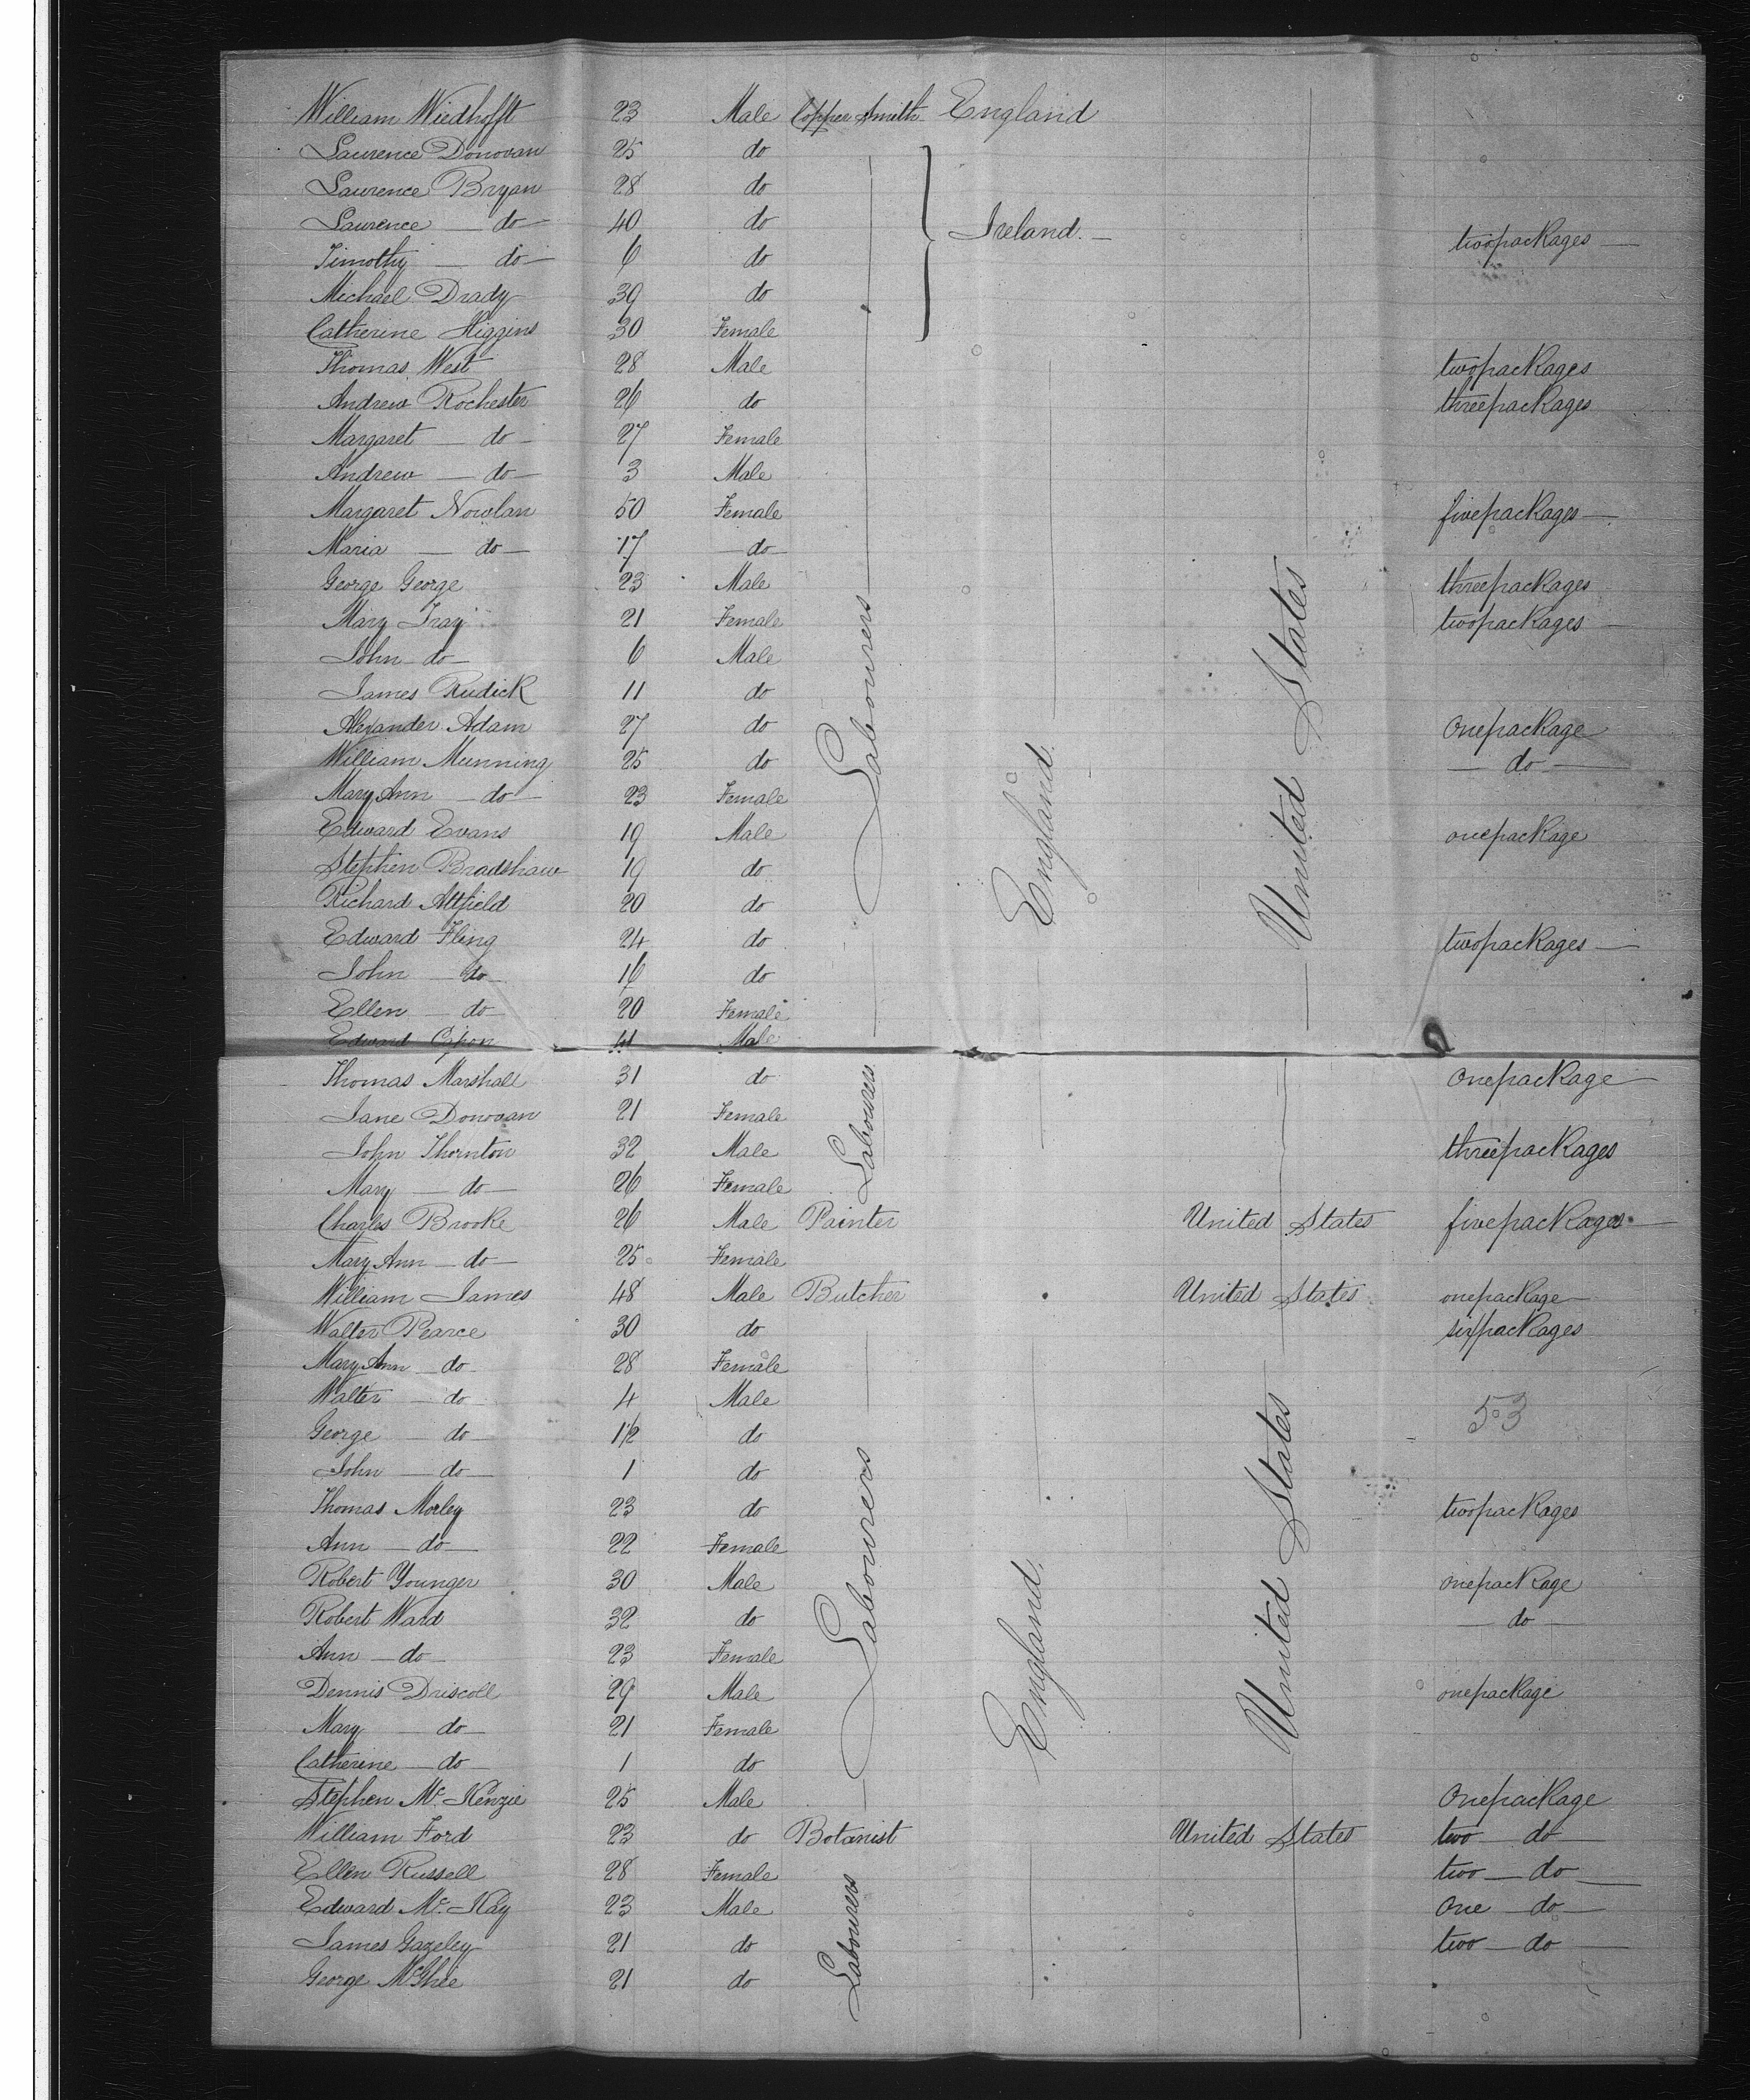 William Wiedhofft 23 Male Copper Smith England
Laurence Donovan 25 do
Laurence Bryan 28 do
Laurence — do — 40 do Ireland. — twopackages —
Timothy — do — 6 do
Michael Drady 39 do
Catherine Higgins 30 Female
Thomas West 28 Male twopackages
Andrew Rochester 26 do threepackages
Margaret — do — 27 Female
Andrew — do — 3 Male
Margaret Nowlan 50 Female fivepackages —
Maria — do — 17 — do —
George George 23 Male threepackages
Mary 21 Female twopackages —
John — do — 6 Male
James Rudick 11 do
Alexander Adam 27 do Onepackage
William Munning 25 do — do —
Mary Ann — do — 23 Female
Edward Evans 19 Male onepackage
Stephen Bradshaw 19 do
Richard Attfield 20 do
Edward Fling 24 do twopackages —
John — do — 16 do
Ellen — do — 20 Female
Labourers
England
United States
Edward 41 Male
Thomas Marshall 31 do Onepackage
Jane Donovan 21 Female
John Thornton 32 Male threepackages
Mary — do — 26 Female
Labourers
Charles Brooke 26 Male Painter United States fivepackages —
Mary Ann — do — 25 Female
William James 48 Male Butcher United States onepackage
Walter Pearce 30 do sixpackages
Mary Ann — do 28 Female
Walter — do 4 Male 53
George — do — 1½ do
John — do — 1 do
Thomas Morley 23 do twopackages
Ann — do — 22 Female
Robert Younger 30 Male onepackage
Robert Ward 32 do — do —
Ann — do — 23 Female
Dennis Driscoll 29 Male onepackage
Mary — do — 21 Female
Catherine — do — 1 do
Stephen Mc. Kenzie 25 Male Onepackage
Labourers
England.
United States
William Ford 23 do Botanist United States two — do —
Ellen Russell 28 Female two — do —
Edward Mc. Kay 23 Male One — do —
James Gazeley 21 do two — do —
George McGhee 21 do
Labourers